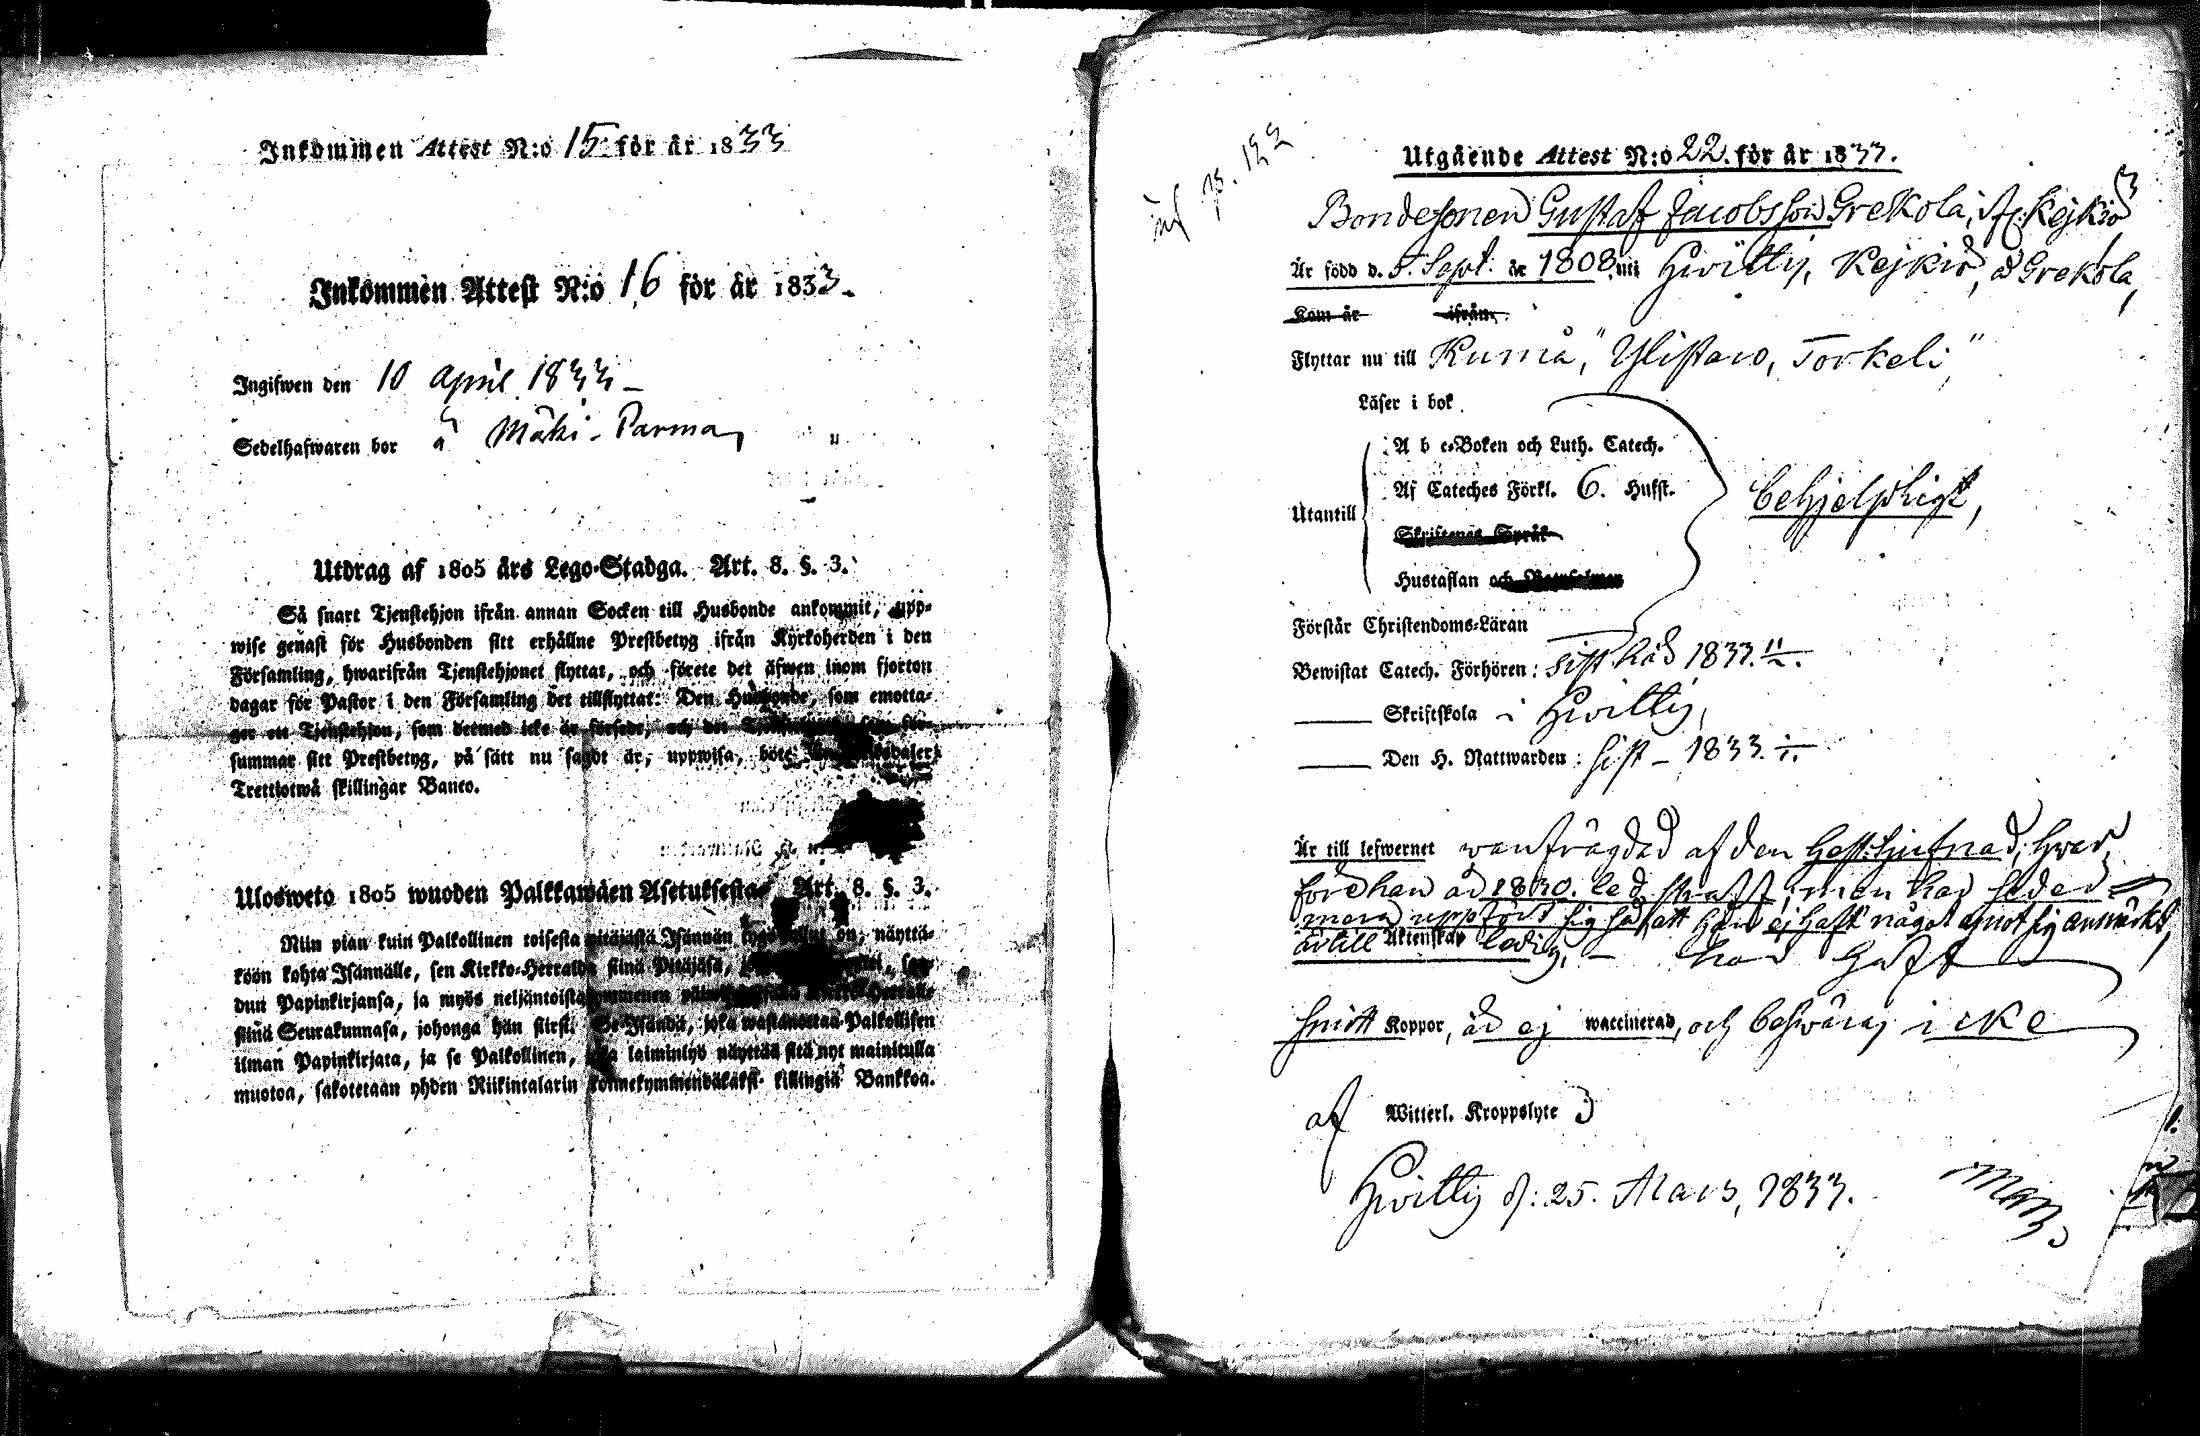 Inkommen Attest N:o 15 för år 1833
Inkommen Attest N:o 16 för år 1833.
Ingifwen den 10 April 1833
Sedelhafwaren bor å Mäki-Parma,
Utdrag af 1805 års Lego-Stadga. Art. 8. §. 3.
Så snart Tjenstehjon ifrån annan Socken till Husbonde ankommit, upp-
wise genast för Husbonden sitt erhållne Prestbetyg ifrån Kyrkoherden i den
Församling, hwarifrån Tjenstehjonet flyttat, och förete det äfwen inom fjorton
dagar för Pastor i den Församling det tillflyttat: Den Husbonde, som emotta-
ger ett Tjenstehjon, som dermed icke är försedt, och det
summar sitt Prestbetyg, på sätt nu sagdt är, uppwisa, böte
Trettiotwå skillingar Banco.
Ulosweto 1805 wuoden Palkkawäen Asetuksesta Art. 8. §. 3.
Niin pian kuin Palkollinen toisesta pitäjästä Isännän tygö on, näyttä-
köön kohta Isännälle, sen Kirkko-Herralda siinä Pitäjäsä,
dun Papinkirjansa, ja myös neljäntoista
siinä Seurakunnasa, johonga hän siirsi. Se Isändä, joka wastanottaa Palkollisen
ilman Papinkirjata, ja se Palkollinen, laiminlyö näyttää sitä nyt mainitulla
muotoa, sakotetaan yhden Riikintalarin kolmekymmendäkaksi killingiä Bankkoa.
Utgående Attest N:o 22. för år 1833.
Bondesonen Gustaf Jacobsson Grekola, fr. Kejkiö
Är född d. 5. Sept. år 1808 uti Hwittis, Kejkiö, å Grekola,
Kom år ifrån
Flyttar nu till Kumå, "Ylistaro, Torkeli,"
Läser i bok
Utantill
A b c-Boken och Luth. Catech.
Af Cateches Förkl. 6. Hufst.
Skriftenes Språk
Hustaflan och
behjelpligt,
Förstår Christendoms-Läran
Bewistat Catech. Förhören: sist här 1833.
Skriftskola i Hwittis,
Den H. Nattwarden: sist - 1833.
Är till lefwernet wanfrägdad af den
före han år 1830. led straff; men har seder-
mera uppfört sig så, att han ej haft något emot sig anmärkt,
är till Äktenskap ledig, - har haft
smitt Koppor, är ej waccinerad, och beswäras icke
af Witterl. Kroppslyte
Hwittis d: 25. Mars, 1833.